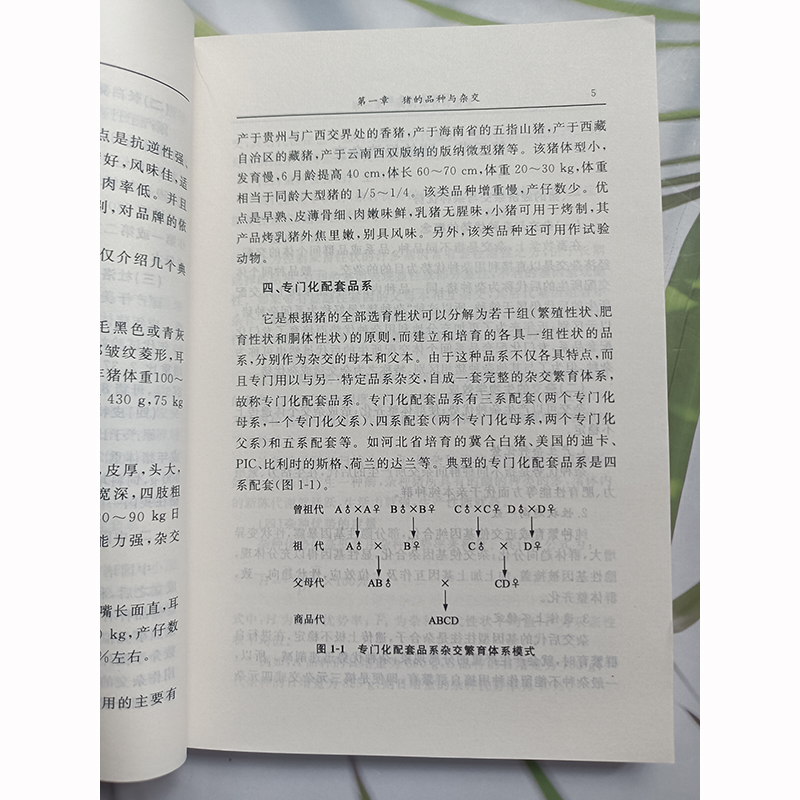 点是抗逆性强、
好，风味佳，适
肉率低。并且
则，对品牌的依
仅介绍几个典
毛黑色或青灰
皱纹菱形，耳
猪体重100～
430 g,75 kg
，皮厚，头大，
宽深，四肢粗
0～90 kg日
能力强，杂交
嘴长面直，耳
0 kg，产仔数
%左右。
用的主要有
第一章 猪的品种与杂交 5
产于贵州与广西交界处的香猪，产于海南省的五指山猪，产于西藏
自治区的藏猪，产于云南西双版纳的版纳微型猪等。该猪体型小，
发育慢，6月龄提高40 cm，体长60～70 cm，体重20～30 kg，体重
相当于同龄大型猪的1/5～1/4。该类品种增重慢，产仔数少。优
点是早熟、皮薄骨细、肉嫩味鲜，乳猪无腥味，小猪可用于烤制，其
产品烤乳猪外焦里嫩，别具风味。另外，该类品种还可用作试验
动物。
四、专门化配套品系
它是根据猪的全部选育性状可以分解为若干组(繁殖性状、肥
育性状和胴体性状)的原则，而建立和培育的各具一组性状的品
系，分别作为杂交的母本和父本。由于这种品系不仅各具特点，而
且专门用以与另一特定品系杂交，自成一套完整的杂交繁育体系，
故称专门化配套品系。专门化配套品系有三系配套(两个专门化
母系，一个专门化父系)、四系配套(两个专门化母系，两个专门化
父系)和五系配套等。如河北省培育的冀合白猪、美国的迪卡、
PIC、比利时的斯格、荷兰的达兰等。典型的专门化配套品系是四
系配套(图1-1)。
曾祖代 A♂×A♀ B♂×B♀ C♂×C♀ D♂×D♀
祖 代 A♂ × B♀ C♂ × D♀
父母代 AB♂ × CD♀
商品代 ABCD
图 1-1 专门化配套品系杂交繁育体系模式